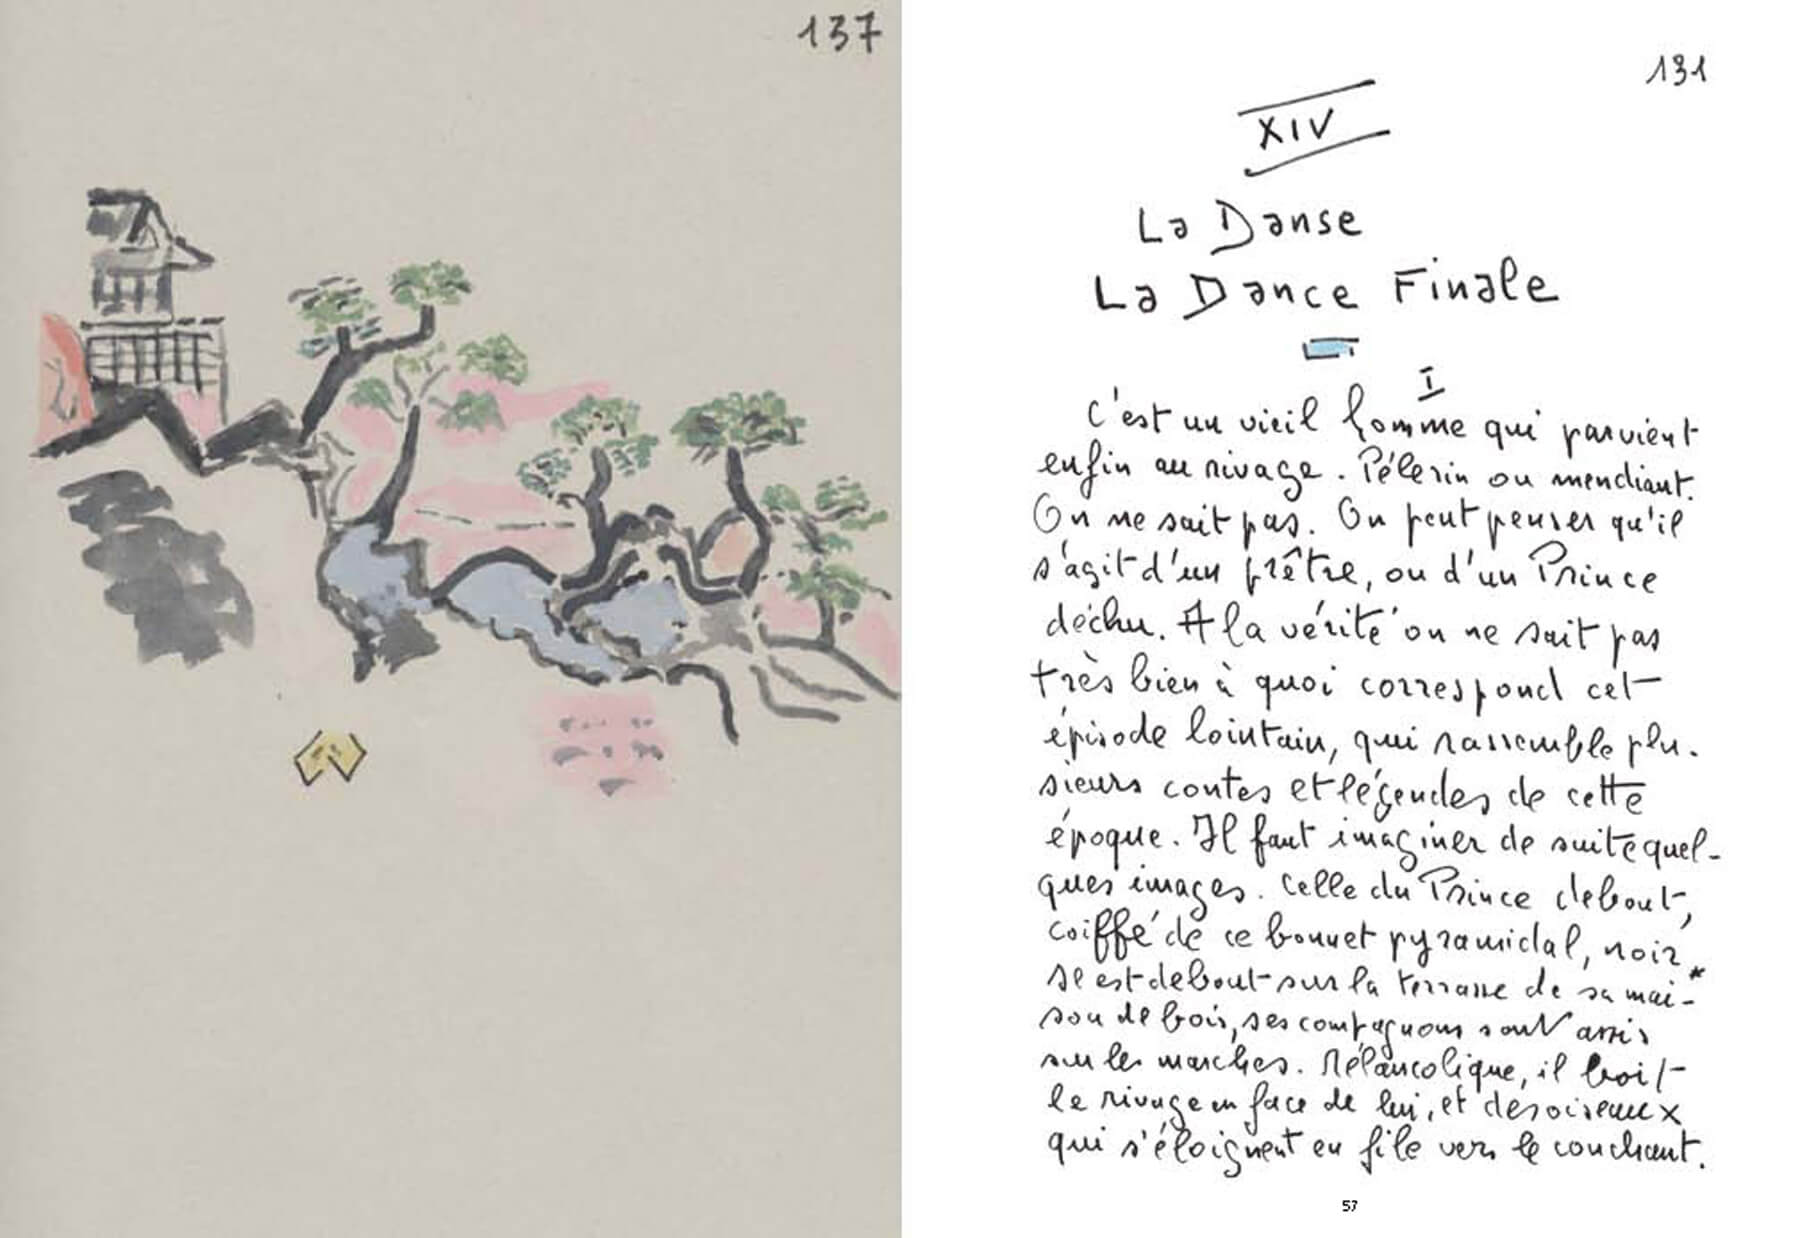 137
131
XIV
La Danse
La Dance Finale
I
C'est un vieil homme qui parvient
enfin au rivage. Pélerin ou mendiant.
On ne sait pas. On peut penser qu'il
s'agit d'un prêtre, ou d'un Prince
déchu. A la vérité on ne sait pas
très bien à quoi correspond cet
épisode lointain, qui rassemble plu-
sieurs contes et légendes de cette
époque. Il faut imaginer de suite quel-
ques images. Celle du Prince debout,
coiffé de ce bonnet pyramidal, noir *
Il est debout sur la terrasse de sa mai-
son de bois, ses compagnons sont assis
sur les marches. Mélancolique, il boit
le rivage en face de lui, et des oiseaux
qui s'éloignent en file vers le couchant.
57